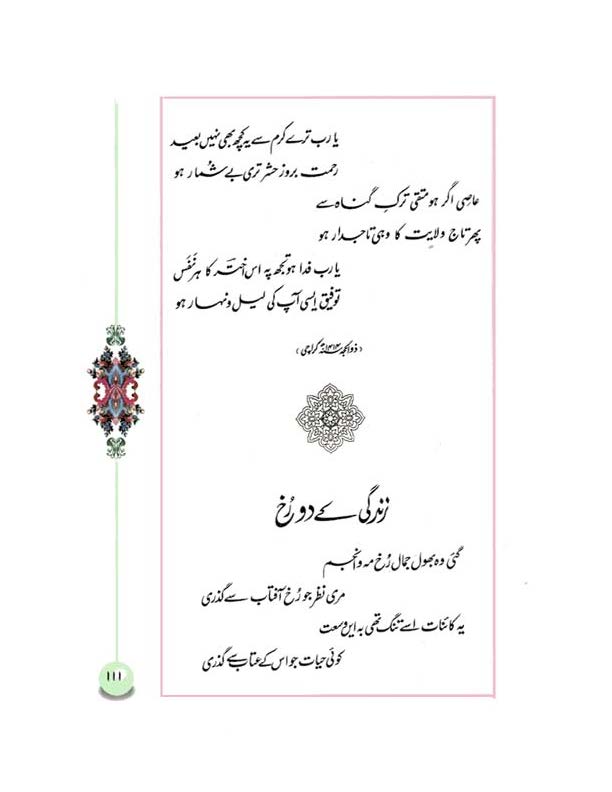 یا رب ترے کرم سے یہ کچھ بھی نہیں بعید
رحمت بروز حشر تری بے شمار ہو
عاصی اگر ہو متقی ترکِ گناہ سے
پھر تاجِ ولایت کا وہی تاجدار ہو
یا رب فدا ہو تجھ پہ اس اختؔر کا ہر نَفَس
توفیق ایسی آپ کی لیل و نہار ہو
(ذوالحجہ ۱۴۱۳ھ کراچی)
زندگی کے دو رُخ
گئی وہ بھول جمال رُخ مہ و انجم
مری نظر جو رُخ آفتاب سے گذری
یہ کائنات اسے تنگ تھی بہ ایں وسعت
کوئی حیات جو اس کے عتاب سے گذری
۱۱۱